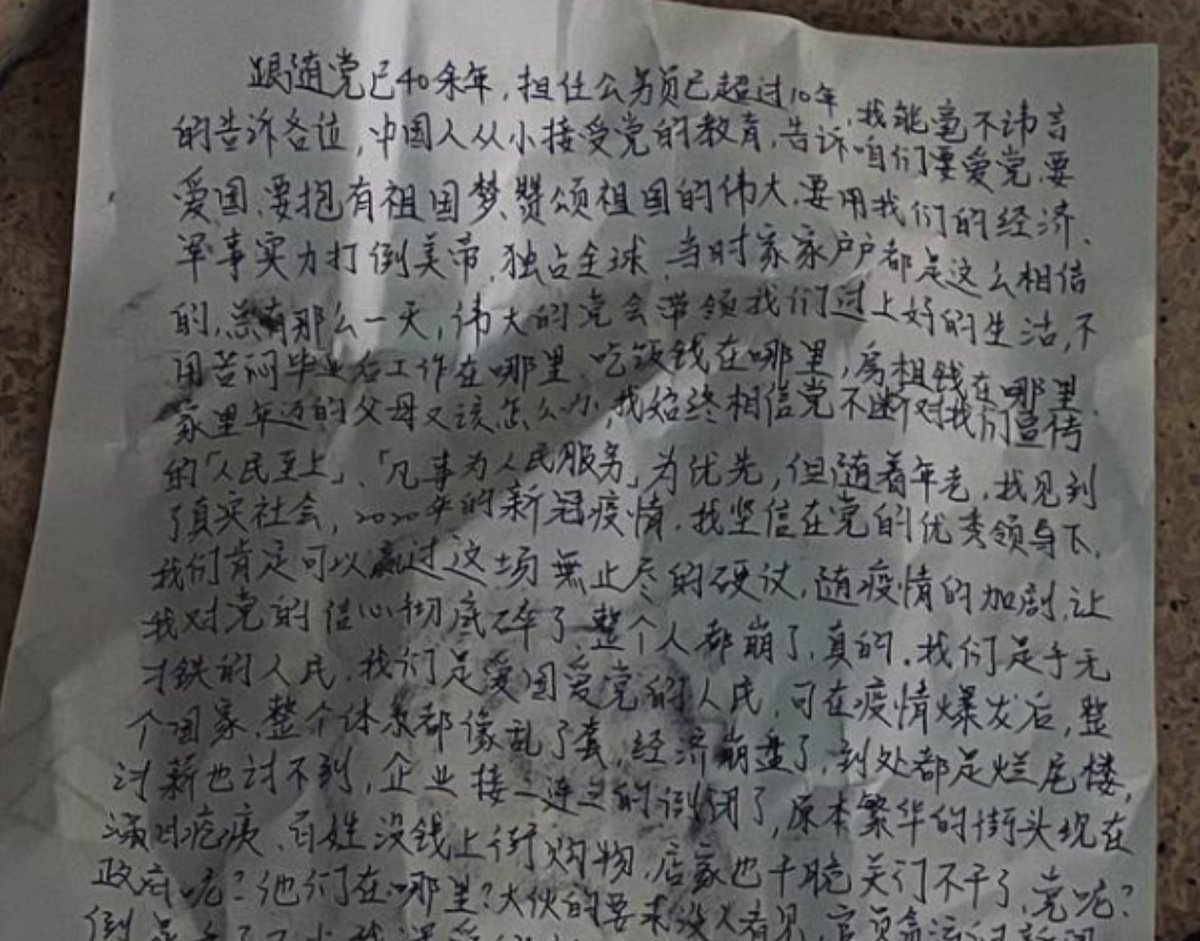 跟随党已40余年，担任公务员已超过10年，我能毫不讳言
的告诉各位，中国人从小接受党的教育，告诉咱们要爱党、要
爱国、要抱有祖国梦、赞颂祖国的伟大、要用我们的经济、
军事实力打倒美帝，独占全球，当时家家户户都是这么相信
的，总有那么一天，伟大的党会带领我们过上好的生活，不
用苦闷毕业后工作在哪里、吃饭钱在哪里，房租钱在哪里，
家里年迈的父母又该怎么办，我始终相信党不断对我们宣传
的「人民至上」、「凡事为人民服务」为优先，但随着年老，我见到
了真实社会，2020年的新冠疫情，我坚信在党的优秀领导下，
我们肯定可以赢过这场無止尽的硬仗，随疫情的加剧，让
我对党的信心彻底碎了，整个人都崩了，真的。我们是手无
寸铁的人民，我们是爱国爱党的人民，可在疫情爆发后，整
个国家、整个体系都像乱了套，经济崩盘了，到处都是烂尾楼，
讨薪也讨不到，企业接二连三的倒闭了，原本繁华的街头现在
满目疮痍、百姓没钱上街购物，店家也干脆关门不干了，党呢？
政府呢？他们在哪里？大伙的要求没人看见，官员
倒是